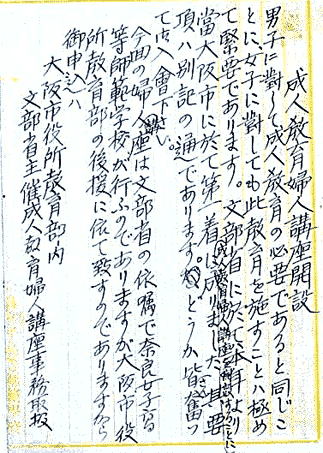 成人教育婦人講座開設
男子に對して成人教育の必要であると同じこ
とに、女子に對しても此教育を施すことハ極め
て緊要であります。文部省に於て本年より
當大阪市に於て第一着に成りました其要
項ハ別記の通であります どうか皆奮つ
て御入會下さい。
今回の婦人講座は文部省の依嘱で奈良女子高
等師範学校が行ふのでありますが大阪市役
所教育部の後援に依て致すのでありますから
御申込ハ
大阪市役所教育部内
文部省主催成人教育婦人講座事務取扱